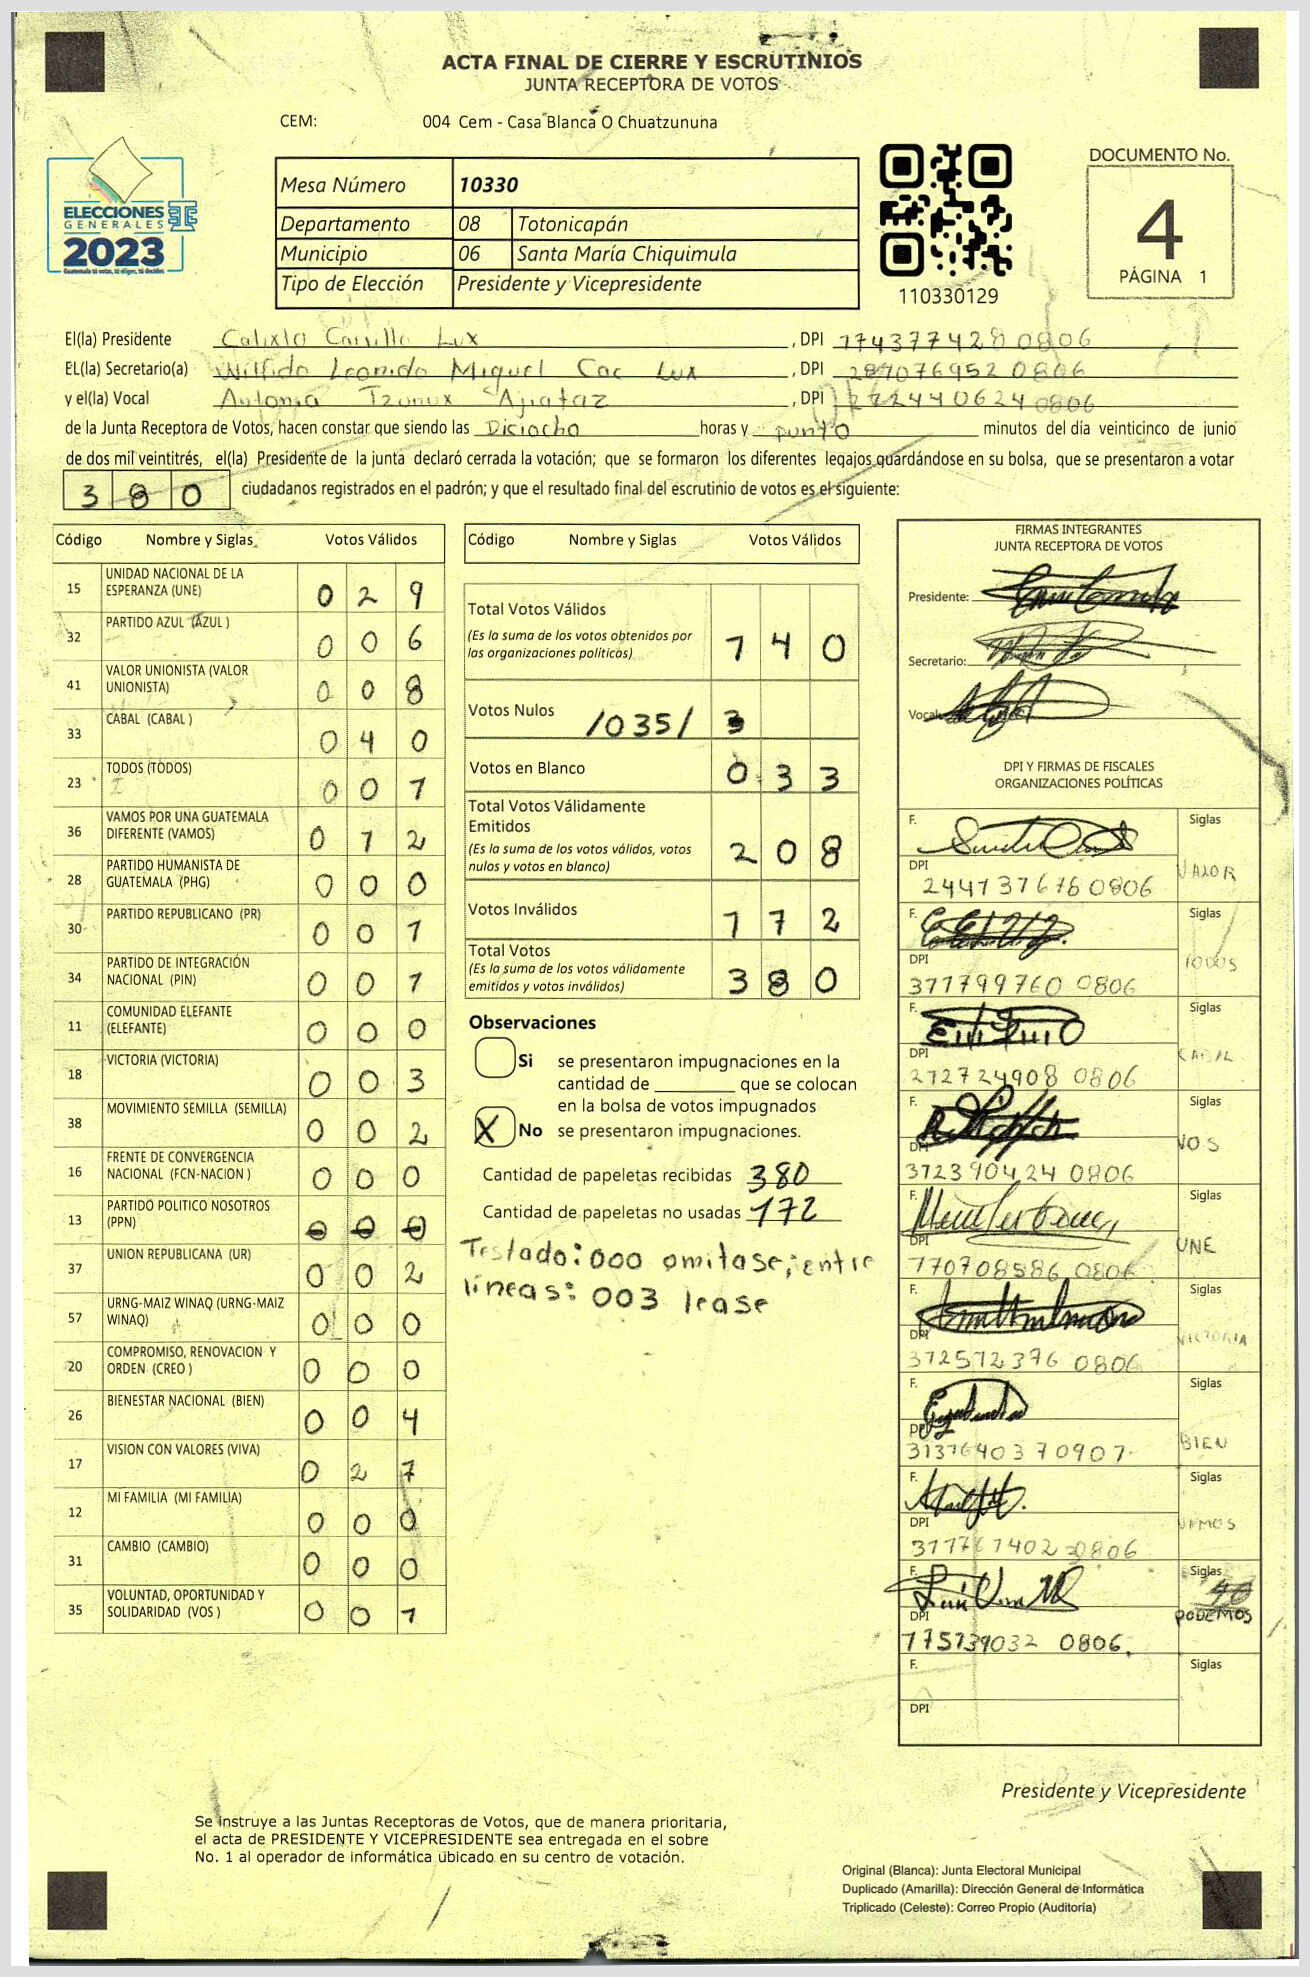 ACTA FINAL DE CIERRE Y ESCRUTINIOS
JUNTA RECEPTORA DE VOTOS
CEM: 004 Cem - Casa Blanca O Chuatzununa
ELECCIONES
GENERALES
2023
Guatemala tú votas, tú eliges, tú decides
Mesa Número 10330
Departamento 08 Totonicapán
Municipio 06 Santa María Chiquimula
Tipo de Elección Presidente y Vicepresidente
110330129
DOCUMENTO No.
4
PÁGINA 1
El(la) Presidente Calixto Carrillo Lux, DPI 1743774280806
EL(la) Secretario(a) Wilfido Leonido Miguel Cac Lux, DPI 2870769520806
y el(la) Vocal Antonia Tzunux Ajiataz, DPI 2724406240806
de la Junta Receptora de Votos, hacen constar que siendo las Diciocho horas y punto minutos del día veinticinco de junio
de dos mil veintitrés, el(la) Presidente de la junta declaró cerrada la votación; que se formaron los diferentes legajos guardándose en su bolsa, que se presentaron a votar
380 ciudadanos registrados en el padrón; y que el resultado final del escrutinio de votos es el siguiente:
Código Nombre y Siglas Votos Válidos
15 UNIDAD NACIONAL DE LA ESPERANZA (UNE) 0 2 9
32 PARTIDO AZUL (AZUL ) 0 0 6
41 VALOR UNIONISTA (VALOR UNIONISTA) 0 0 8
33 CABAL (CABAL ) 0 4 0
23 TODOS (TODOS) 0 0 7
36 VAMOS POR UNA GUATEMALA DIFERENTE (VAMOS) 0 1 2
28 PARTIDO HUMANISTA DE GUATEMALA (PHG) 0 0 0
30 PARTIDO REPUBLICANO (PR) 0 0 1
34 PARTIDO DE INTEGRACIÓN NACIONAL (PIN) 0 0 1
11 COMUNIDAD ELEFANTE (ELEFANTE) 0 0 0
18 VICTORIA (VICTORIA) 0 0 3
38 MOVIMIENTO SEMILLA (SEMILLA) 0 0 2
16 FRENTE DE CONVERGENCIA NACIONAL (FCN-NACION ) 0 0 0
13 PARTIDO POLITICO NOSOTROS (PPN) 0 0 0
37 UNION REPUBLICANA (UR) 0 0 2
57 URNG-MAIZ WINAQ (URNG-MAIZ WINAQ) 0 0 0
20 COMPROMISO, RENOVACION Y ORDEN (CREO ) 0 0 0
26 BIENESTAR NACIONAL (BIEN) 0 0 4
17 VISION CON VALORES (VIVA) 0 2 7
12 MI FAMILIA (MI FAMILIA) 0 0 0
31 CAMBIO (CAMBIO) 0 0 0
35 VOLUNTAD, OPORTUNIDAD Y SOLIDARIDAD (VOS ) 0 0 1
Código Nombre y Siglas Votos Válidos
Total Votos Válidos
(Es la suma de los votos obtenidos por
las organizaciones políticas) 1 4 0
Votos Nulos /035/
Votos en Blanco 0 3 3
Total Votos Válidamente
Emitidos
(Es la suma de los votos válidos, votos
nulos y votos en blanco) 2 0 8
Votos Inválidos 1 7 2
Total Votos
(Es la suma de los votos válidamente
emitidos y votos inválidos) 3 8 0
Observaciones
Si se presentaron impugnaciones en la
cantidad de ________ que se colocan
en la bolsa de votos impugnados
X No se presentaron impugnaciones.
Cantidad de papeletas recibidas 380
Cantidad de papeletas no usadas 172
Testado: 000 omitase; entre
líneas: 003 lease
FIRMAS INTEGRANTES
JUNTA RECEPTORA DE VOTOS
Presidente:
Secretario:
Vocal:
DPI Y FIRMAS DE FISCALES
ORGANIZACIONES POLÍTICAS
F. Siglas
DPI VALOR
2447376760806
F. Siglas
DPI TODOS
3777997600806
F. Siglas
DPI CABAL
2727249080806
F. Siglas
DPI VOS
3723904240806
F. Siglas
DPI UNE
1707085860806
F. Siglas
DPI VICTORIA
3725723960806
F. Siglas
DPI BIEN
3137640370907
F. Siglas
DPI VAMOS
3777674020806
F. Siglas
DPI PODEMOS
1757390320806
F. Siglas
DPI
Presidente y Vicepresidente
Se instruye a las Juntas Receptoras de Votos, que de manera prioritaria,
el acta de PRESIDENTE Y VICEPRESIDENTE sea entregada en el sobre
No. 1 al operador de informática ubicado en su centro de votación.
Original (Blanca): Junta Electoral Municipal
Duplicado (Amarilla): Dirección General de Informática
Triplicado (Celeste): Correo Propio (Auditoría)